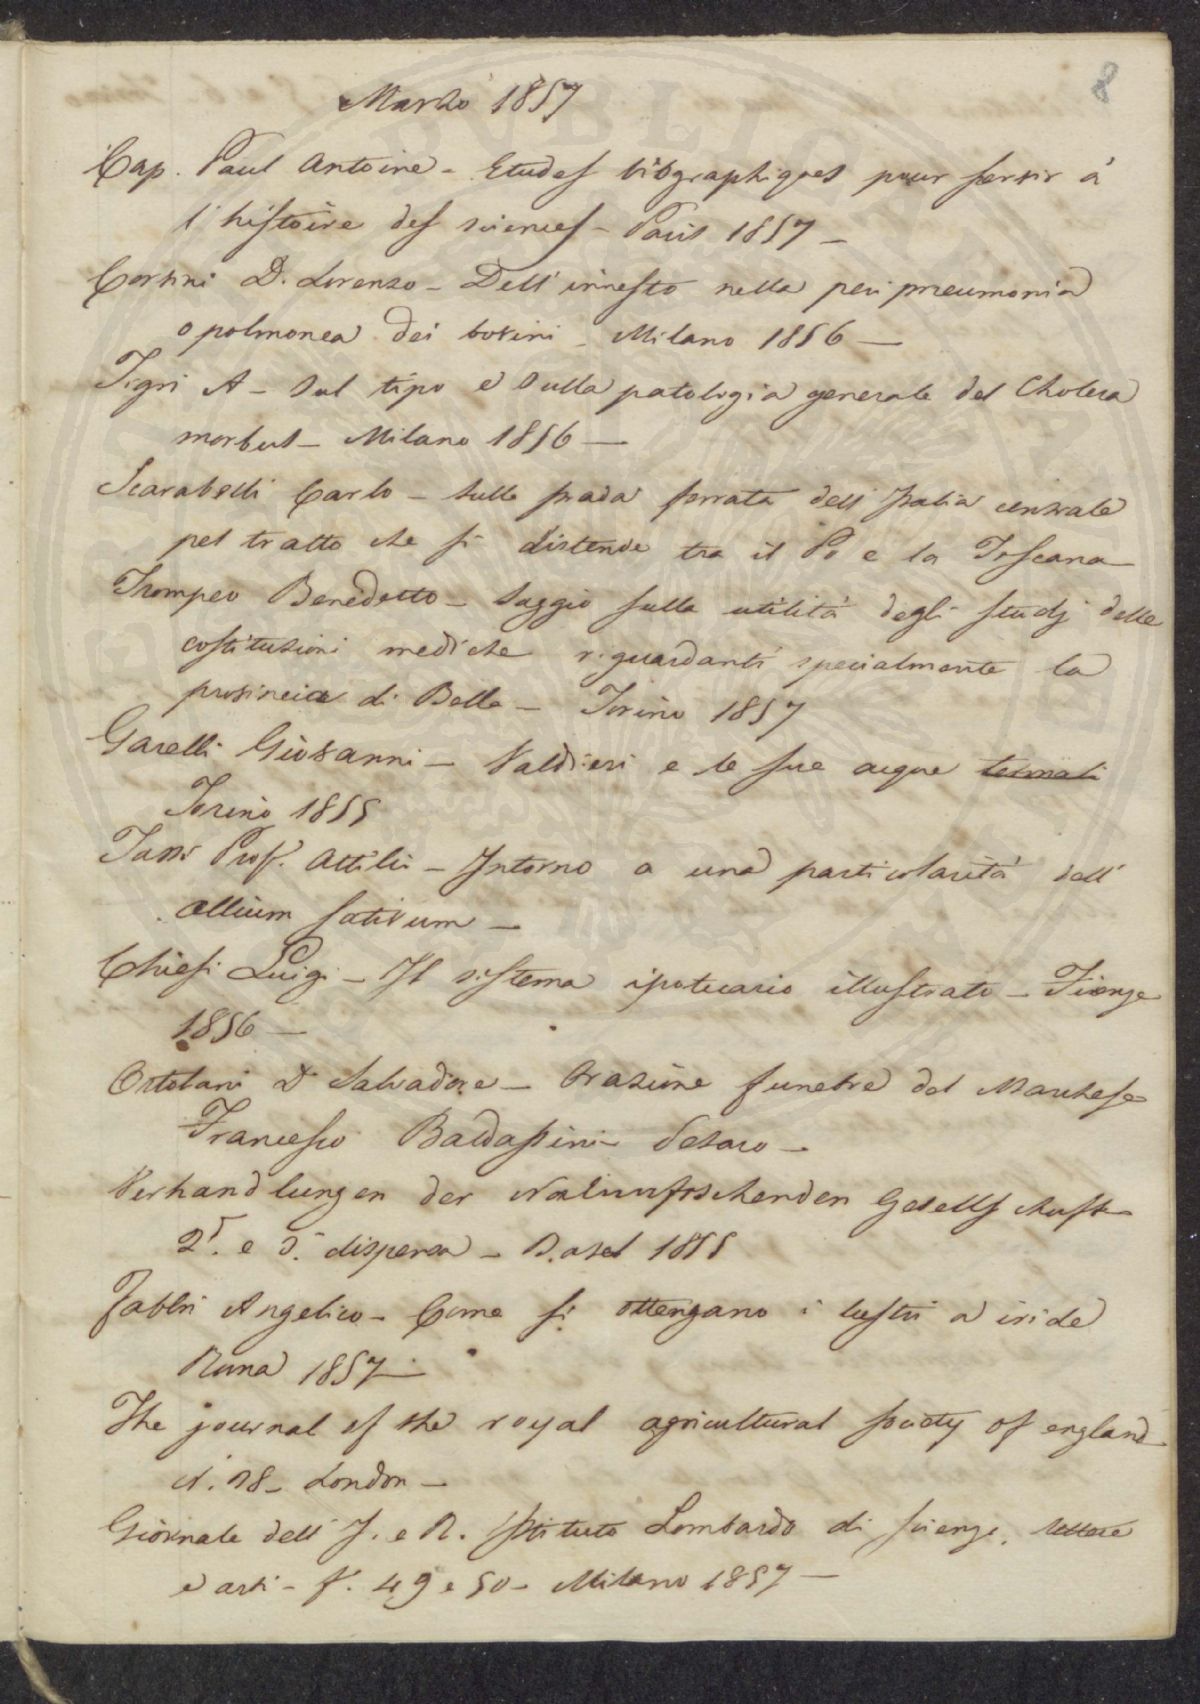 8
Marzo 1857
Cap. Paul Antoine - Etudes biographiques pour servir à
l'histoire des sciences - Paris 1857 -
Corsini D. Lorenzo - Dell'innesto nella peripneumonia
o polmonea dei bovini - Milano 1856 -
Tigri A - Sul tipo e sulla patologia generale del Cholera
morbus - Milano 1856 -
Scarabelli Carlo - Sulla strada ferrata dell'Italia centrale
pel tratto che si distende tra il Po e la Toscana
Trompeo Benedetto - Saggio sulla utilità degli studj delle
costituzioni mediche riguardanti specialmente la
provincia di Bella - Torino 1857
Garelli Giovanni - Valdieri e le sue acque termali
Torino 1855
Tassi Prof. Attilio - Intorno a una particolarità dell'
allium sativum -
Chiesi Luigi - Il sistema ipotecario illustrato - Firenze
1856 -
Ortolani D. Salvadore - Orazione funebre del Marchese
Francesco Baldassini - Pesaro -
Verhandlungen der Gesellschaft
2ª. e 3ª dispensa - Basel 1855
Fabbri Angelico - Come si ottengano i lustri a iride
Roma 1857 -
The journal of the royal agricultural society of england
N. 38 - London -
Giornale dell'I. e R. Istituto Lombardo di scienze, lettere
e arti - f. 49 e 50 - Milano 1857 -